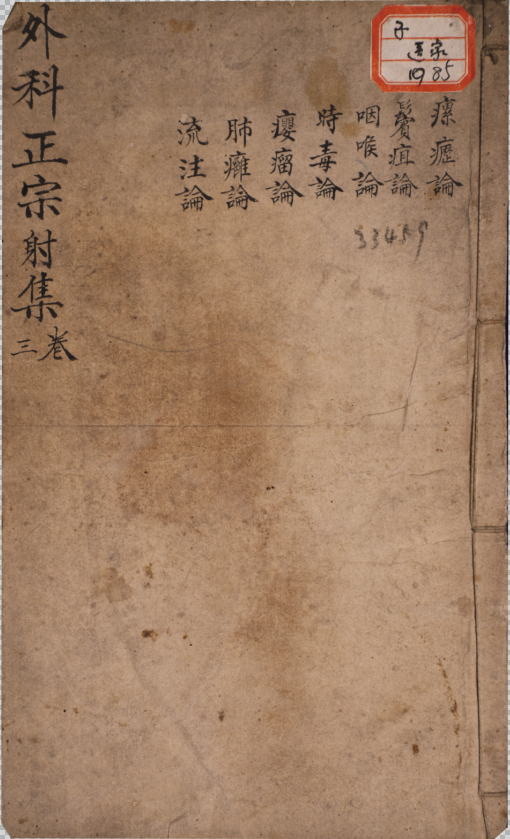 子
醫家
1085
瘰癧論
鬢疽論
咽喉論
時毒論
癭瘤論
肺癰論
流注論
33459
外科正宗射集卷三